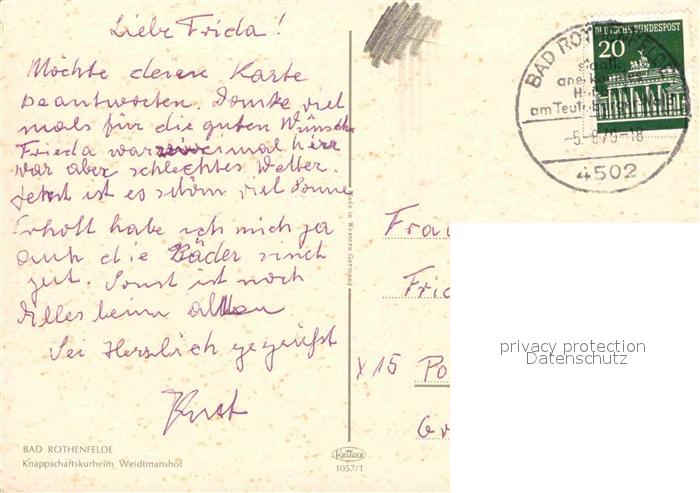 Liebe Frida!
Möchte deren Karte
beantworten. Danke viel
mals für die guten Wünsche
Frieda war mal hier
war aber schlechtes Wetter.
Jetzt ist es schöm viel Sonne
Erholt habe ich mich ja
auch die Bäder sind
gut. Sonst ist noch
Alles beim alten
Sei Herzlich gegrüßt
Kurt
BAD ROTHENFELDE
Knappschaftskurheim Weidtmanshof
Made in Western Germany
KRÜGER
1057/1
DEUTSCHE BUNDESPOST
20
BAD
am Teutoburger Wald
4502
Frau
Frid
15 Po
Gr
privacy protection
Datenschutz